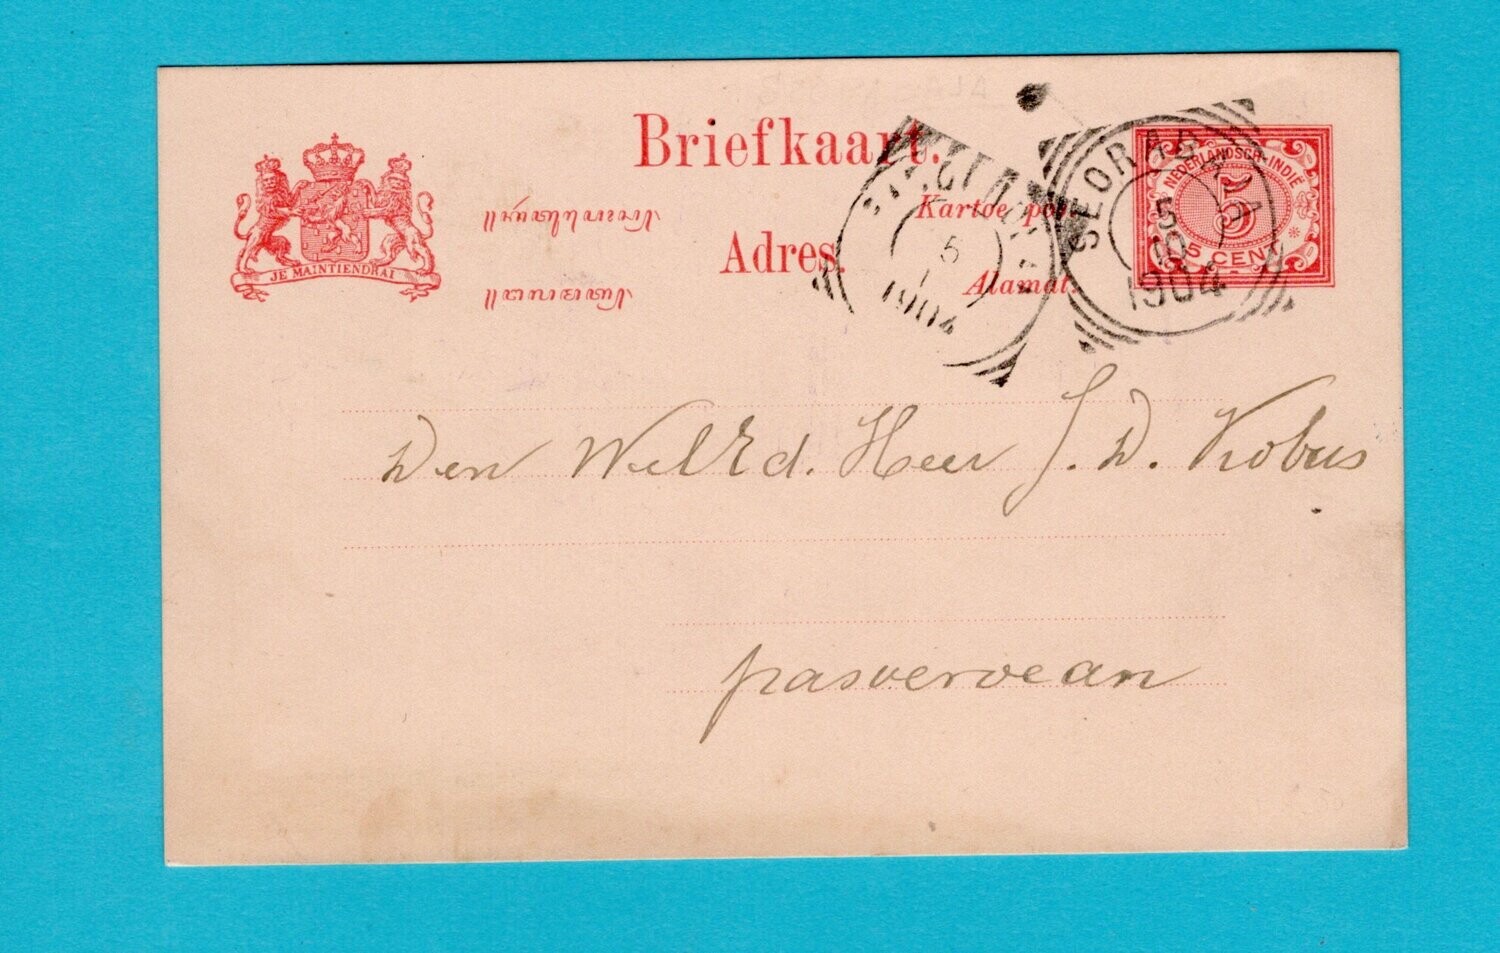 Briefkaart.
Kartoe pos.
Adres.
Alamat.
JE MAINTIENDRAI
NEDERLANDSCH-INDIË
5
5 CENT
5
1904
SOERABAJA
5
10
1904
Den WelEd. Heer J. D. Kobus
pasoeroean